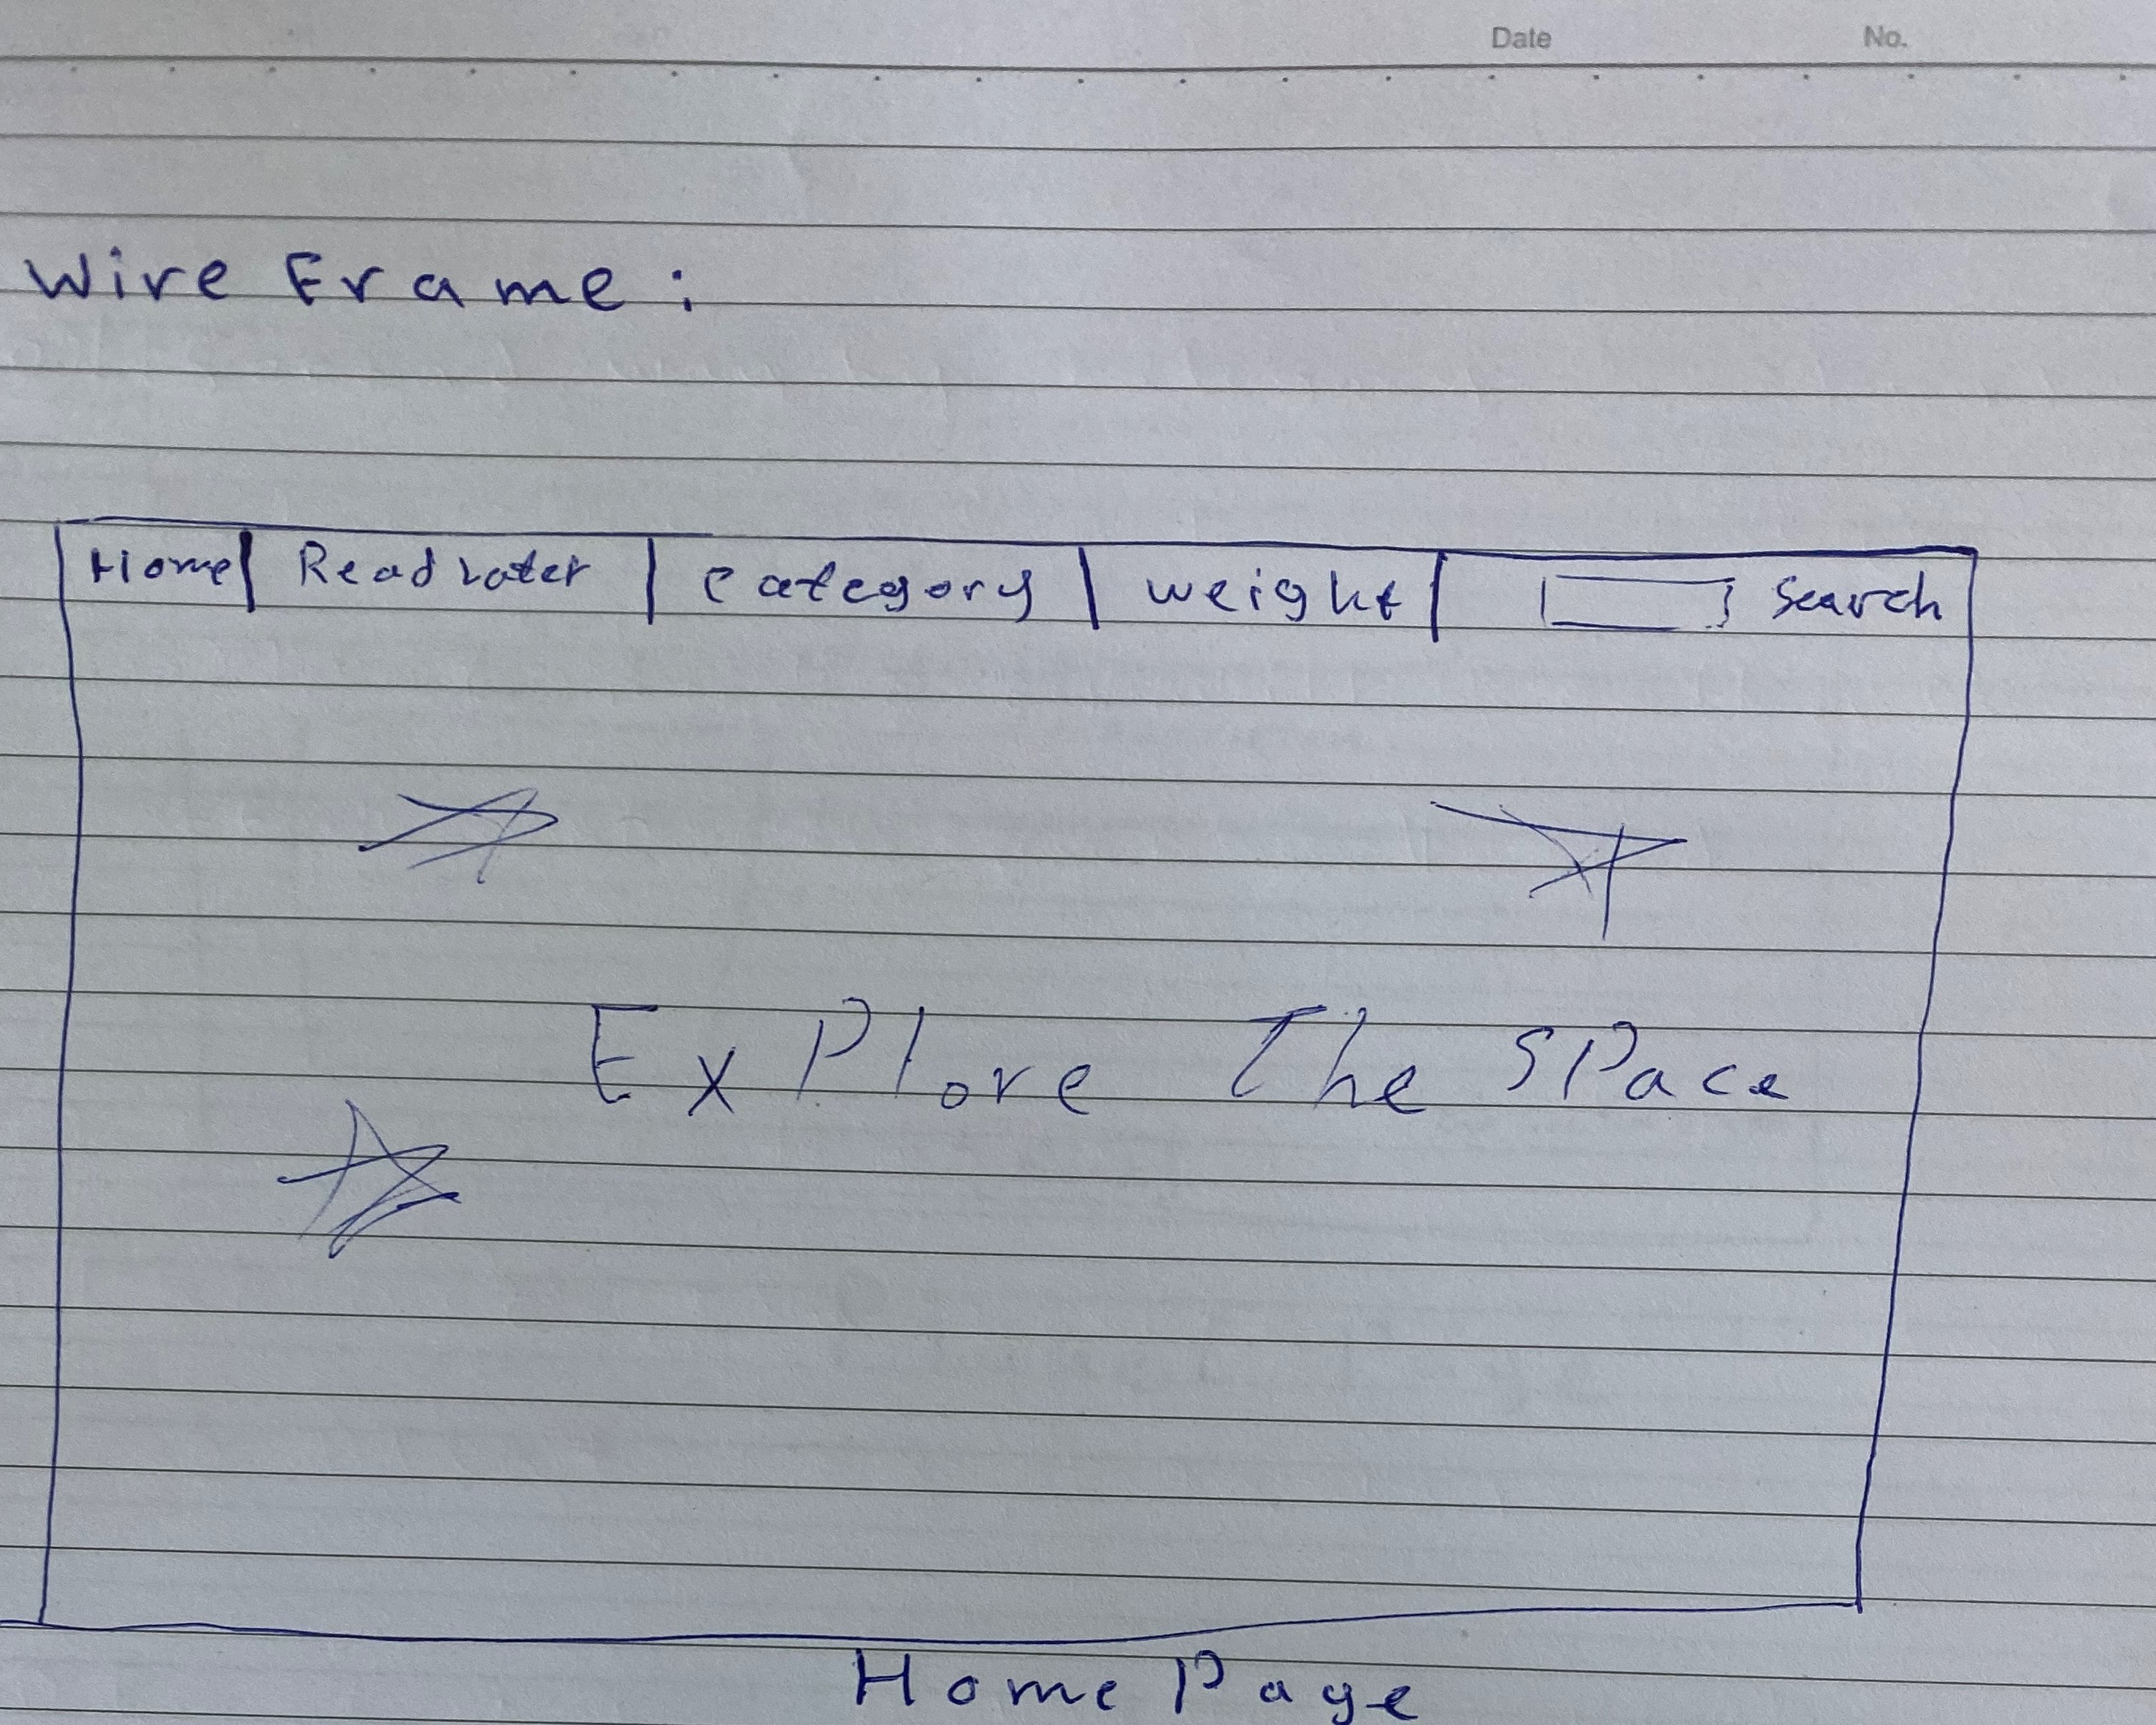 Date No.
Wire Frame :
Home | Read Later | category | weight | Search
ExPlore The SPace
Home Page